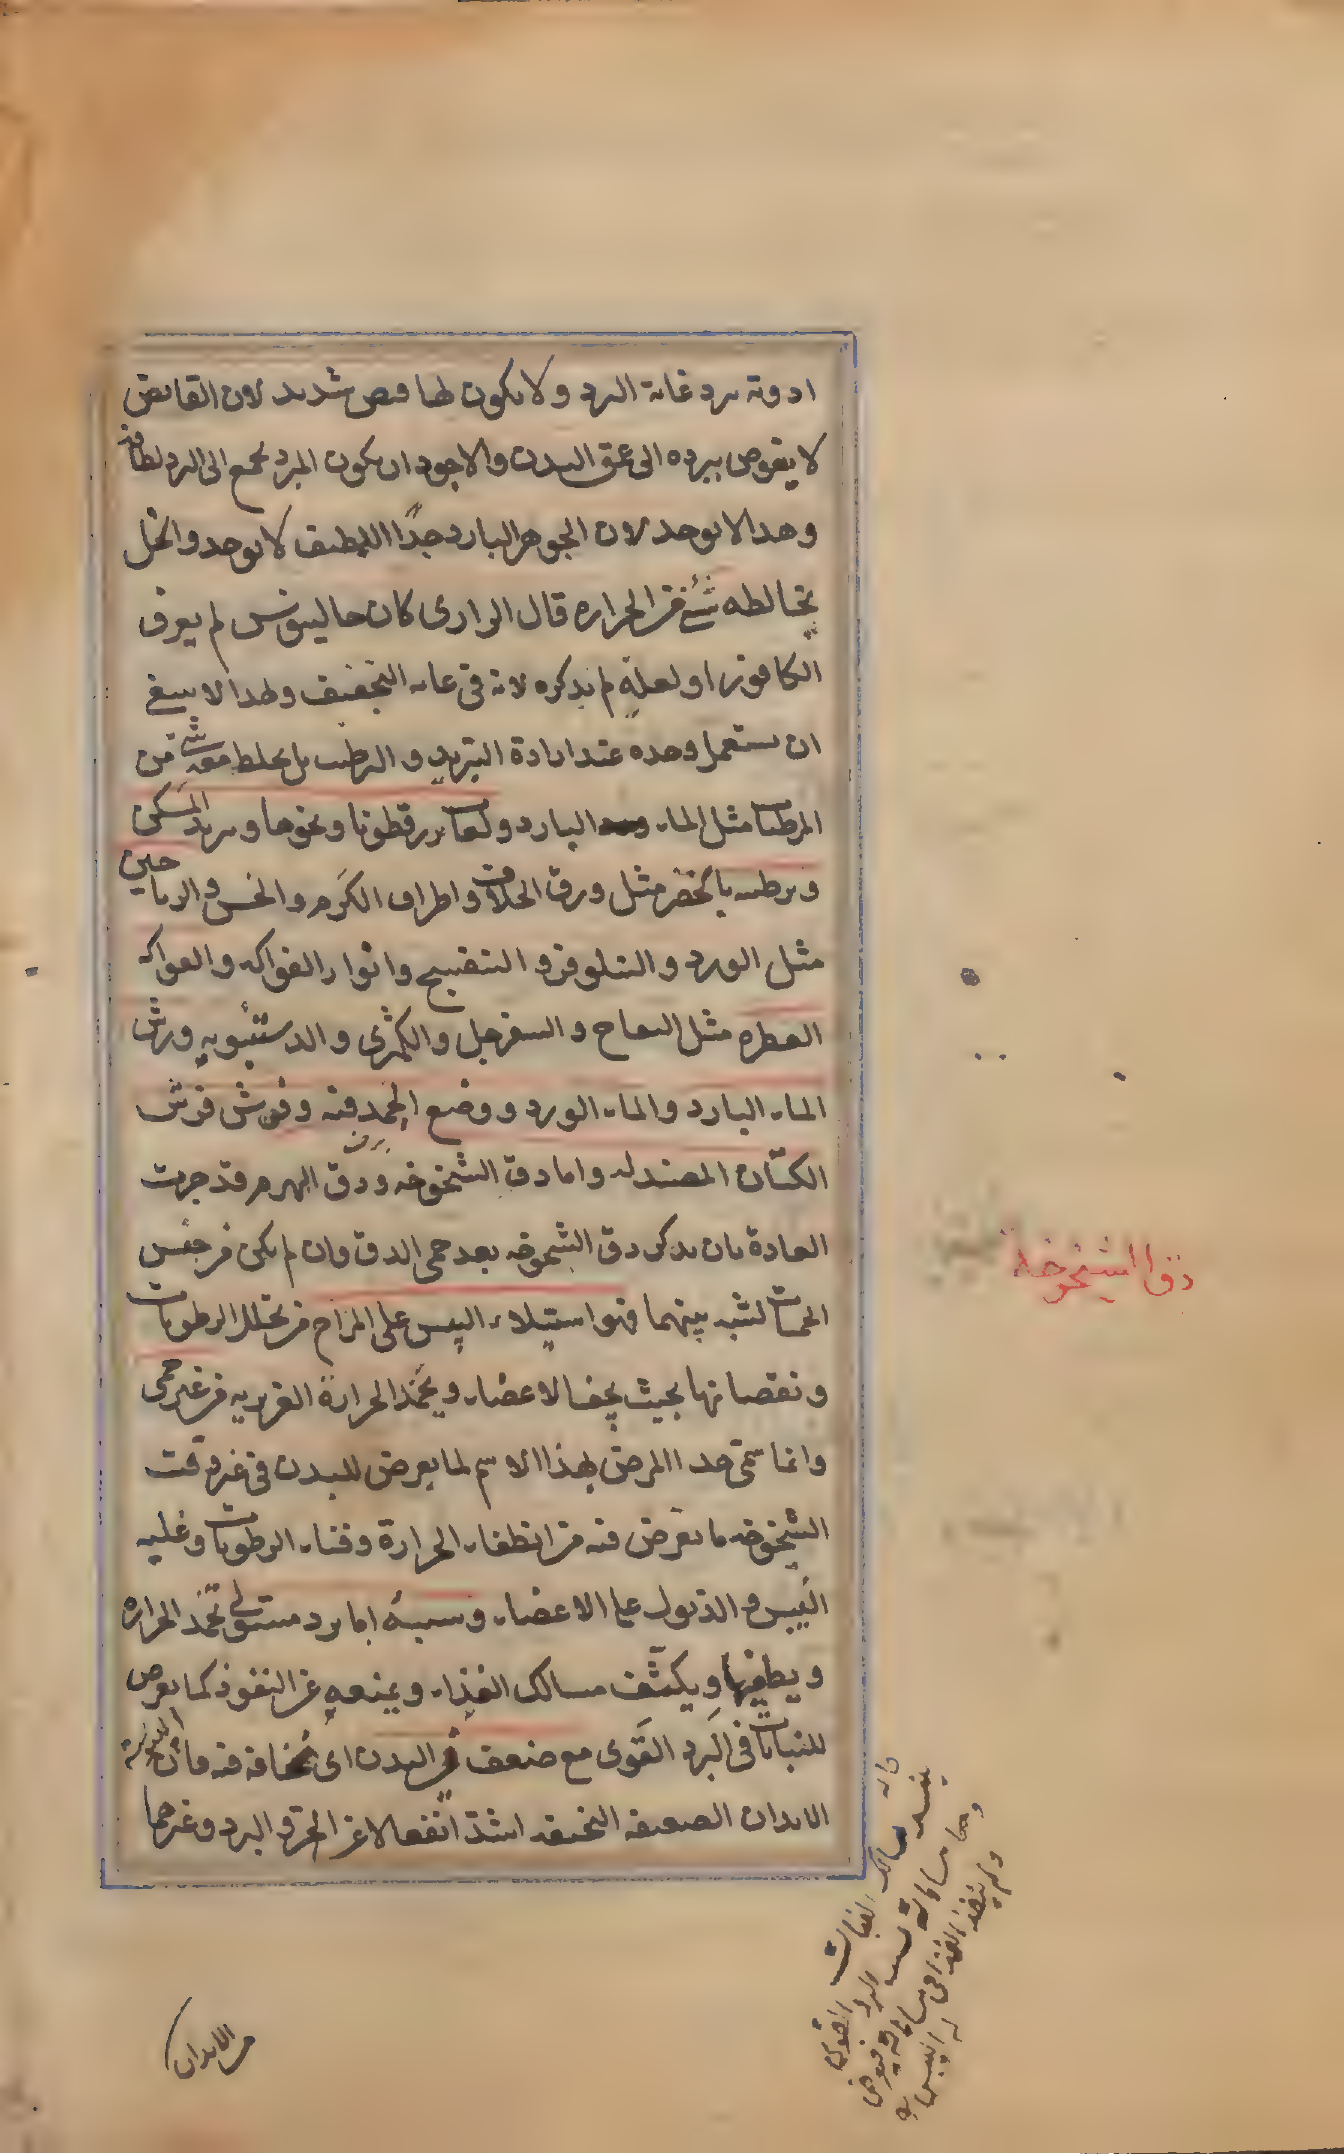 ادوية تبرد غاية البرد ولا يكون لها قبض شديد لان القابض
لا يغوص ببرده الى عمق البدن والاجود ان يكون المبرد يجمع الى البرد لطافة
وهذا لا يوجد لان الجوهر البارد جدًا اللطيف لا يوجد والخل
يخالطه شئ من الحرارة قال الرازى كان جالينوس لم يعرف
الكافور او لعله لم يذكره لانه فى غاية التجفيف ولهذا لا ينبغى
ان يستعمل وحده عند ارادة التبريد والترطيب بل يخلط معه شئ من
المرطبات مثل الماء البارد ولعاب بزرقطونا ونحوها ويبرد المسكن
ويرطب بالخضر مثل ورق الخلاف واطراف الكرم والخس والرياحين
مثل الورد والنيلوفر والبنفسج وانوار الفواكه والفواكه
العطرة مثل التفاح والسفرجل والكمثرى والدستنبويه ورش
الماء البارد والماء الورد ووضع الجمد فيه وفرش فرش
الكتان المصندلة واما دق الشيخوخة ودق الهرم فقد جرت
العادة بان يذكر دق الشيخوخة بعد حمى الدق وان لم يكن من جنس
الحميات لشبه بينهما فهو استيلاء اليبس على المزاج من تحلل الرطوبات
ونقصانها بحيث يجف الاعضاء ويخمد الحرارة الغريزية من غير حمى
وانما سمى هذا المرض بهذا الاسم لما يعرض للبدن فى غير وقت
الشيخوخة ما يعرض فيه من انطفاء الحرارة وفناء الرطوبات وغلبة
اليبس والذبول على الاعضاء وسببه اما برد مستولى تخمد الحرارة
ويطفيها ويكثف مسالك الغذاء ويمنعه عن النفوذ كما يعرض
للنباتات فى البرد القوى مع ضعف من البدن اى نحافة فيه فان
الابدان الضعيفة النحيفة اشد انفعالا عن الحر والبرد وغيرهما
دق الشيخوخة
ولم ينفذ الغذا فى
من الابدان